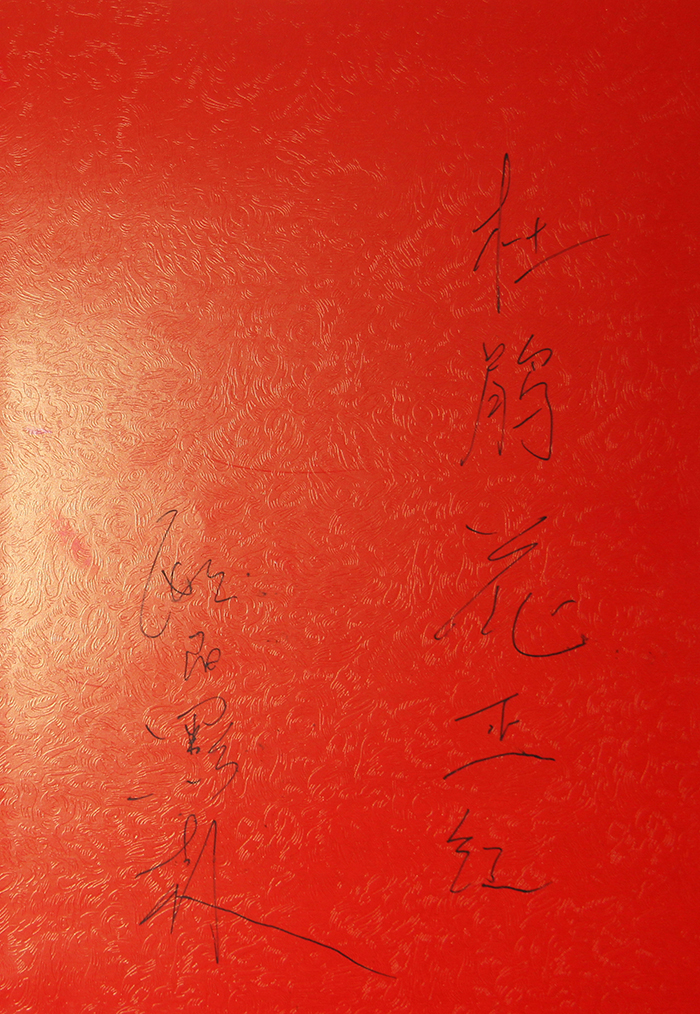 杜鹃花正红
欧阳黔森